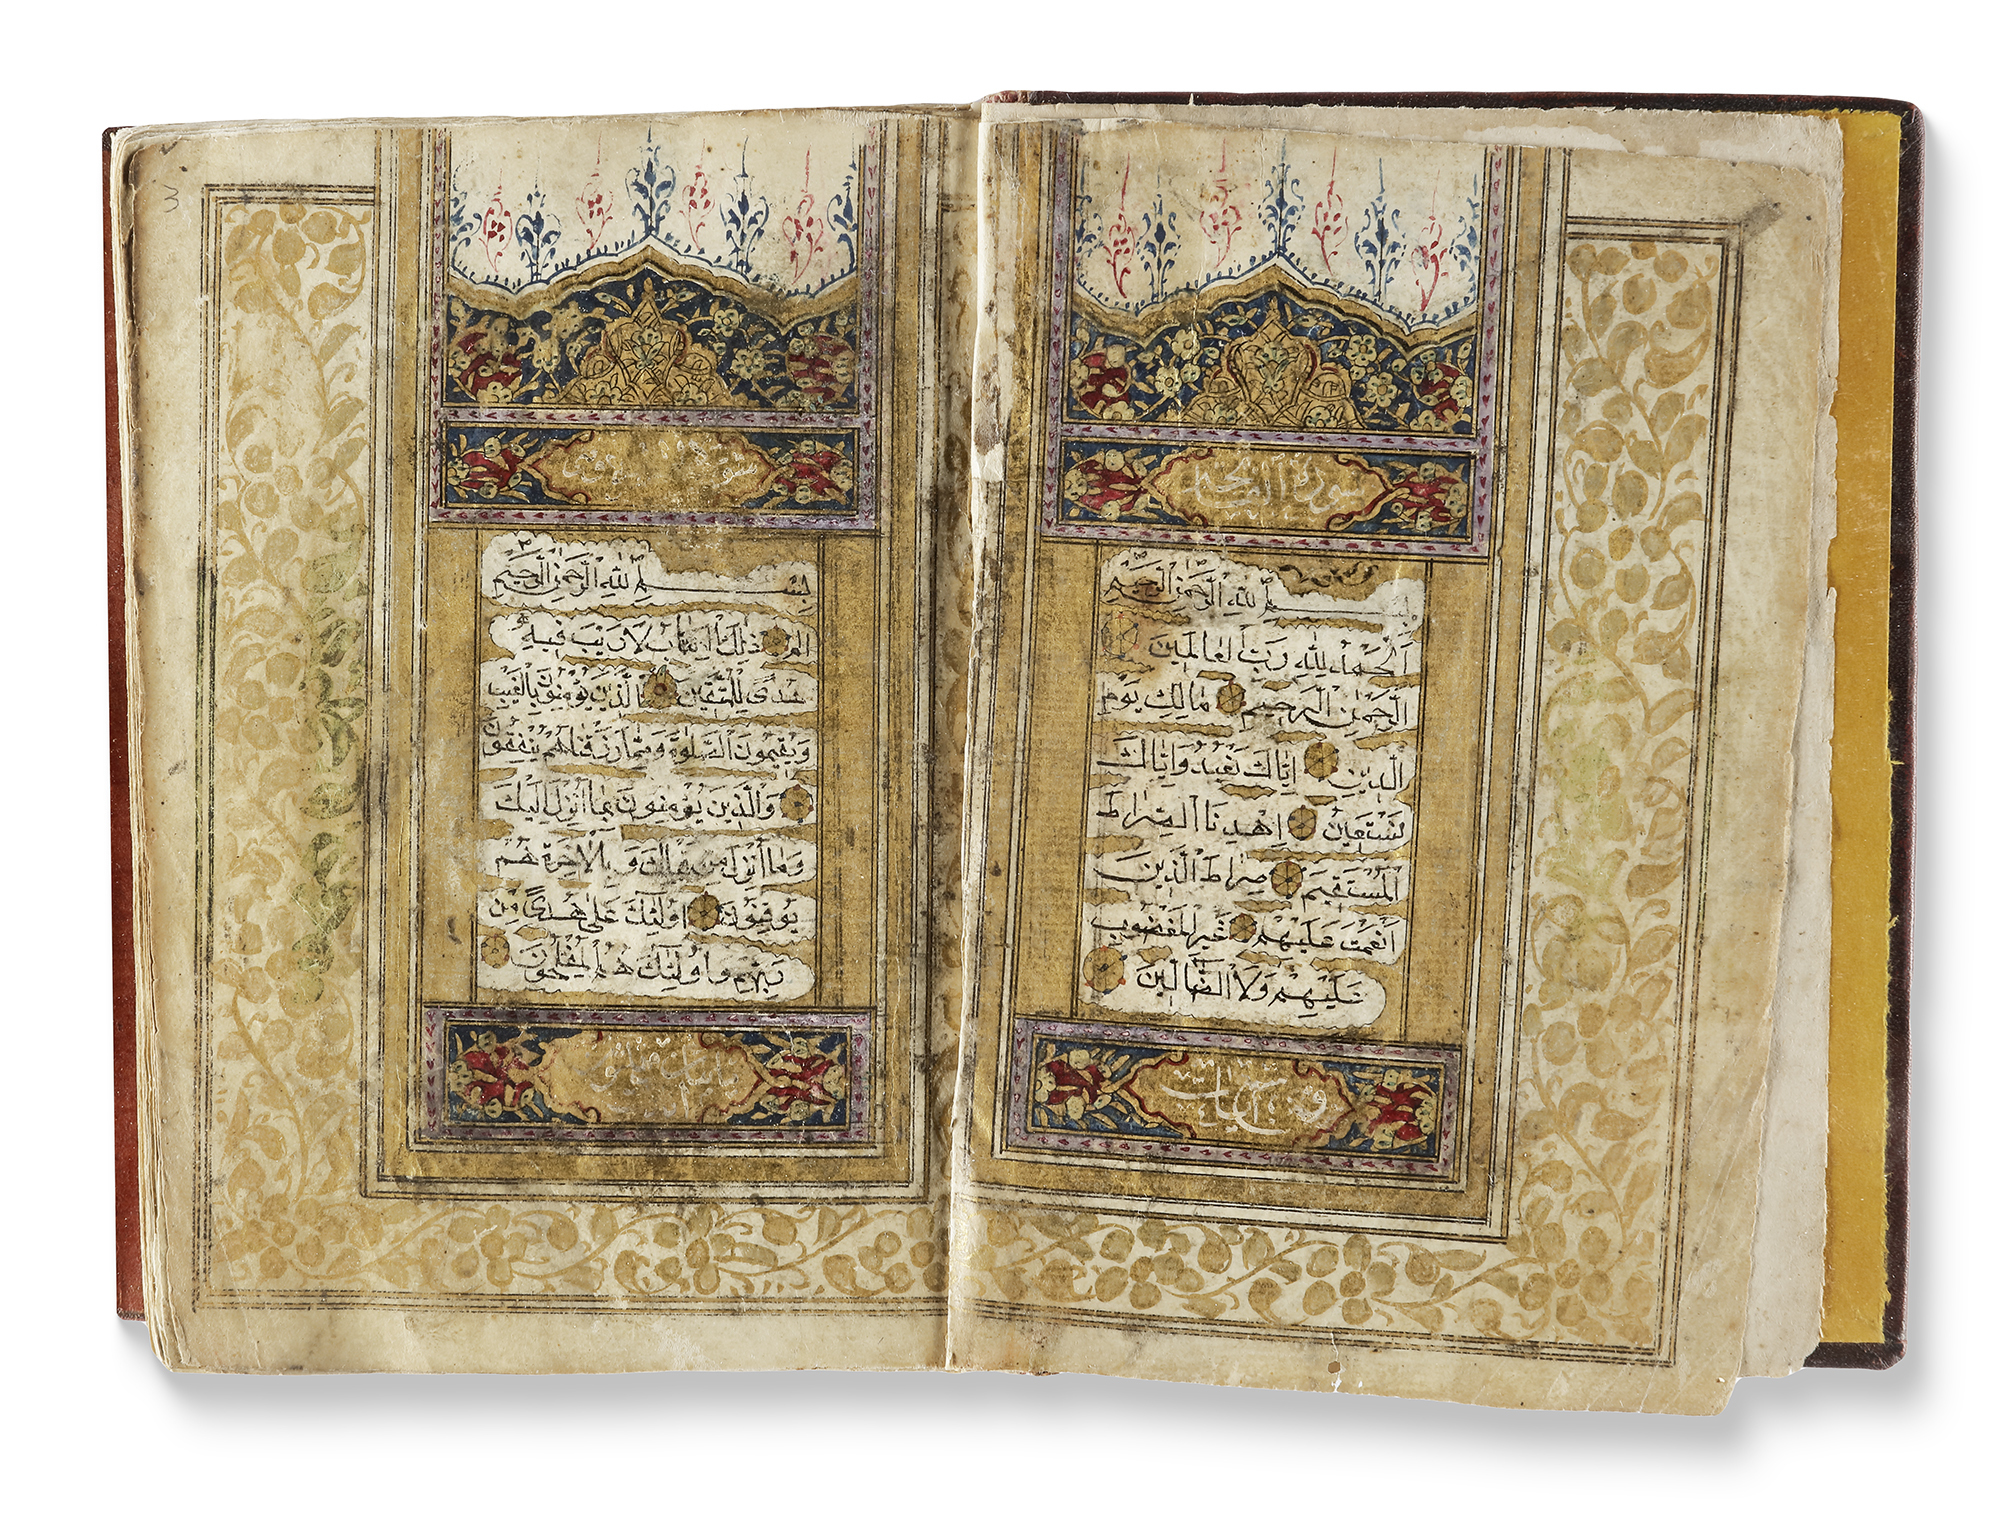 سورة الفاتحة
بِسْمِ اللهِ الرَّحْمٰنِ الرَّحِيمِ
اَلْحَمْدُ لِلّٰهِ رَبِّ الْعَالَمِينَ
الرَّحْمٰنِ الرَّحِيمِ مَالِكِ يَوْمِ
الدِّينِ اِيَّاكَ نَعْبُدُ وَاِيَّاكَ
نَسْتَعِينُ اِهْدِنَا الصِّرَاطَ
الْمُسْتَقِيمَ صِرَاطَ الَّذِينَ
اَنْعَمْتَ عَلَيْهِمْ غَيْرِ الْمَغْضُوبِ
عَلَيْهِمْ وَلَا الضَّالِّينَ
بِسْمِ اللهِ الرَّحْمٰنِ الرَّحِيمِ
الم ذٰلِكَ الْكِتَابُ لَا رَيْبَ فِيهِ
هُدًى لِلْمُتَّقِينَ الَّذِينَ يُؤْمِنُونَ بِالْغَيْبِ
وَيُقِيمُونَ الصَّلٰوةَ وَمِمَّا رَزَقْنَاهُمْ يُنْفِقُونَ
وَالَّذِينَ يُؤْمِنُونَ بِمَا اُنْزِلَ اِلَيْكَ
وَمَا اُنْزِلَ مِنْ قَبْلِكَ وَبِالْاٰخِرَةِ هُمْ
يُوقِنُونَ اُولٰئِكَ عَلٰى هُدًى مِنْ
رَبِّهِمْ وَاُولٰئِكَ هُمُ الْمُفْلِحُونَ
3